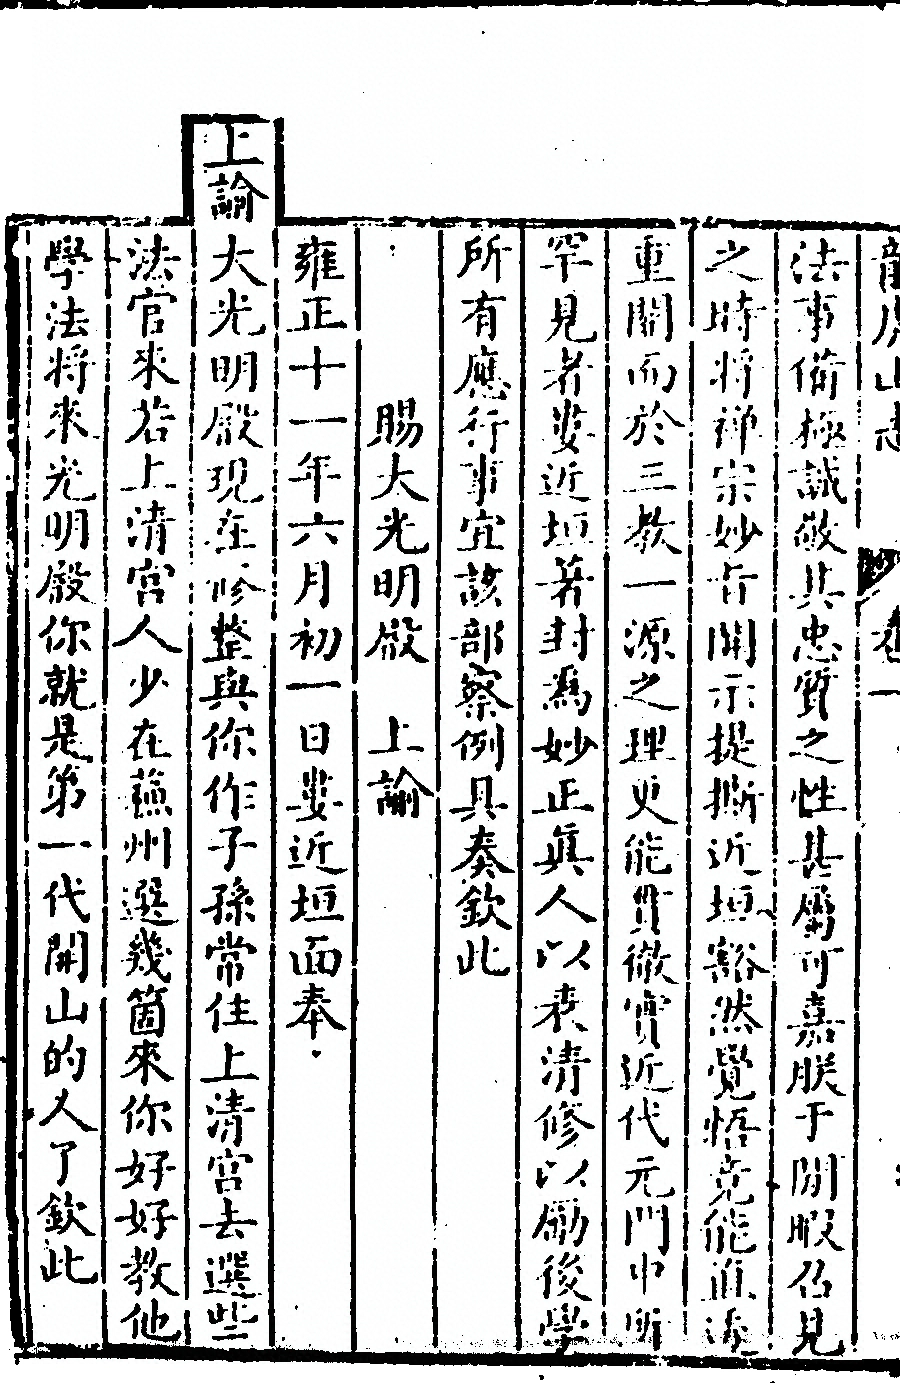 龍虎山志 卷一
法事備極誠敬其忠質之性甚屬可嘉朕于閒暇召見
之時將禪宗妙旨開示提撕近垣豁然覺悟竟能直透
重關而於三教一源之理更能貫徹實近代元門中所
罕見者婁近垣著封為妙正真人以表清修以勵後學
所有應行事宜該部察例具奏欽此
賜大光明殿 上諭
雍正十一年六月初一日婁近垣面奉
上諭大光明殿現在修整與你作子孫常住上清宮去選些
法官來若上清宮人少在蘇州選幾箇來你好好教他
學法將來光明殿你就是第一代開山的人了欽此